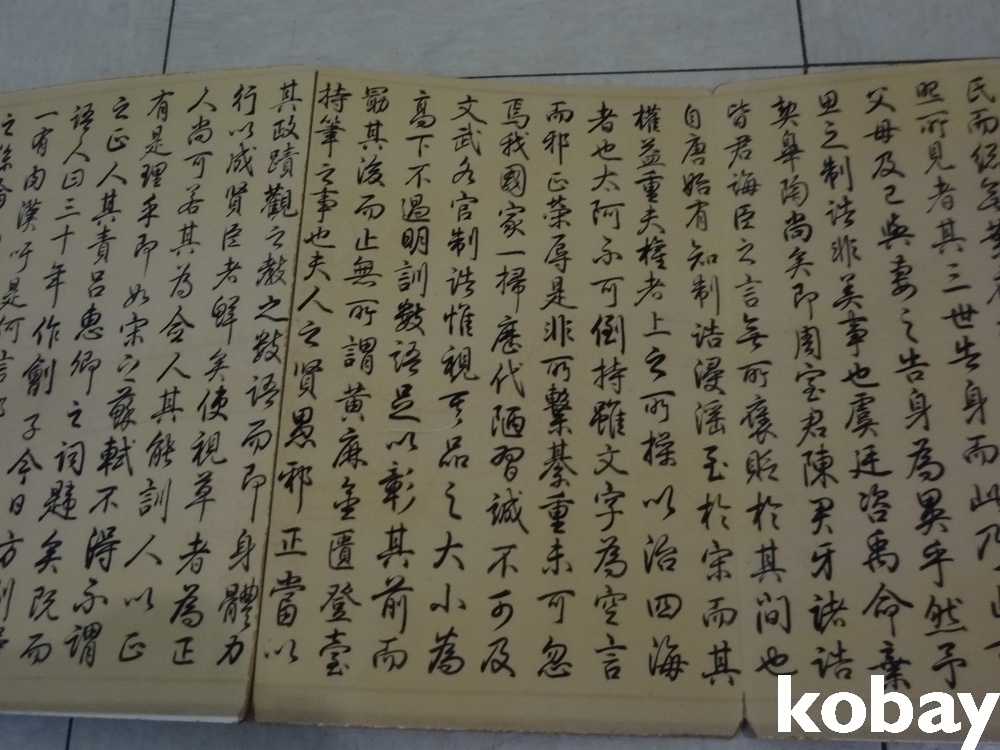 民而
照所見者其三世告身而此乃
父母及已與妻之告身為異乎然予
思之制誥非美事也虞廷咨禹命棄
契皋陶尚矣即周室君陳君牙諸誥
皆君誨臣之言無所褒貶於其間也
自唐始有知制誥浸淫至於宋而其
權益重夫權者上之所操以治四海
者也太阿不可倒持雖文字為空言
而邪正榮辱是非所繫綦重未可忽
焉我國家一掃歷代陋習誠不可及
文武各官制誥惟視其品之大小為
高下不過明訓數語足以彰其前而
勗其後而止無所謂黃麻金匱登臺
持筆之事也夫人之賢愚邪正當以
其政蹟觀之教之數語而即身體力
行以成賢臣者鮮矣使視草者為正
人尚可若其為僉人其能訓人以正
有是理乎即如宋之蘇軾不得不謂
之正人其責呂惠卿之詞韙矣既而
語人曰三十年作劊子今日方剮
一有肉漢吁是何言
kobay